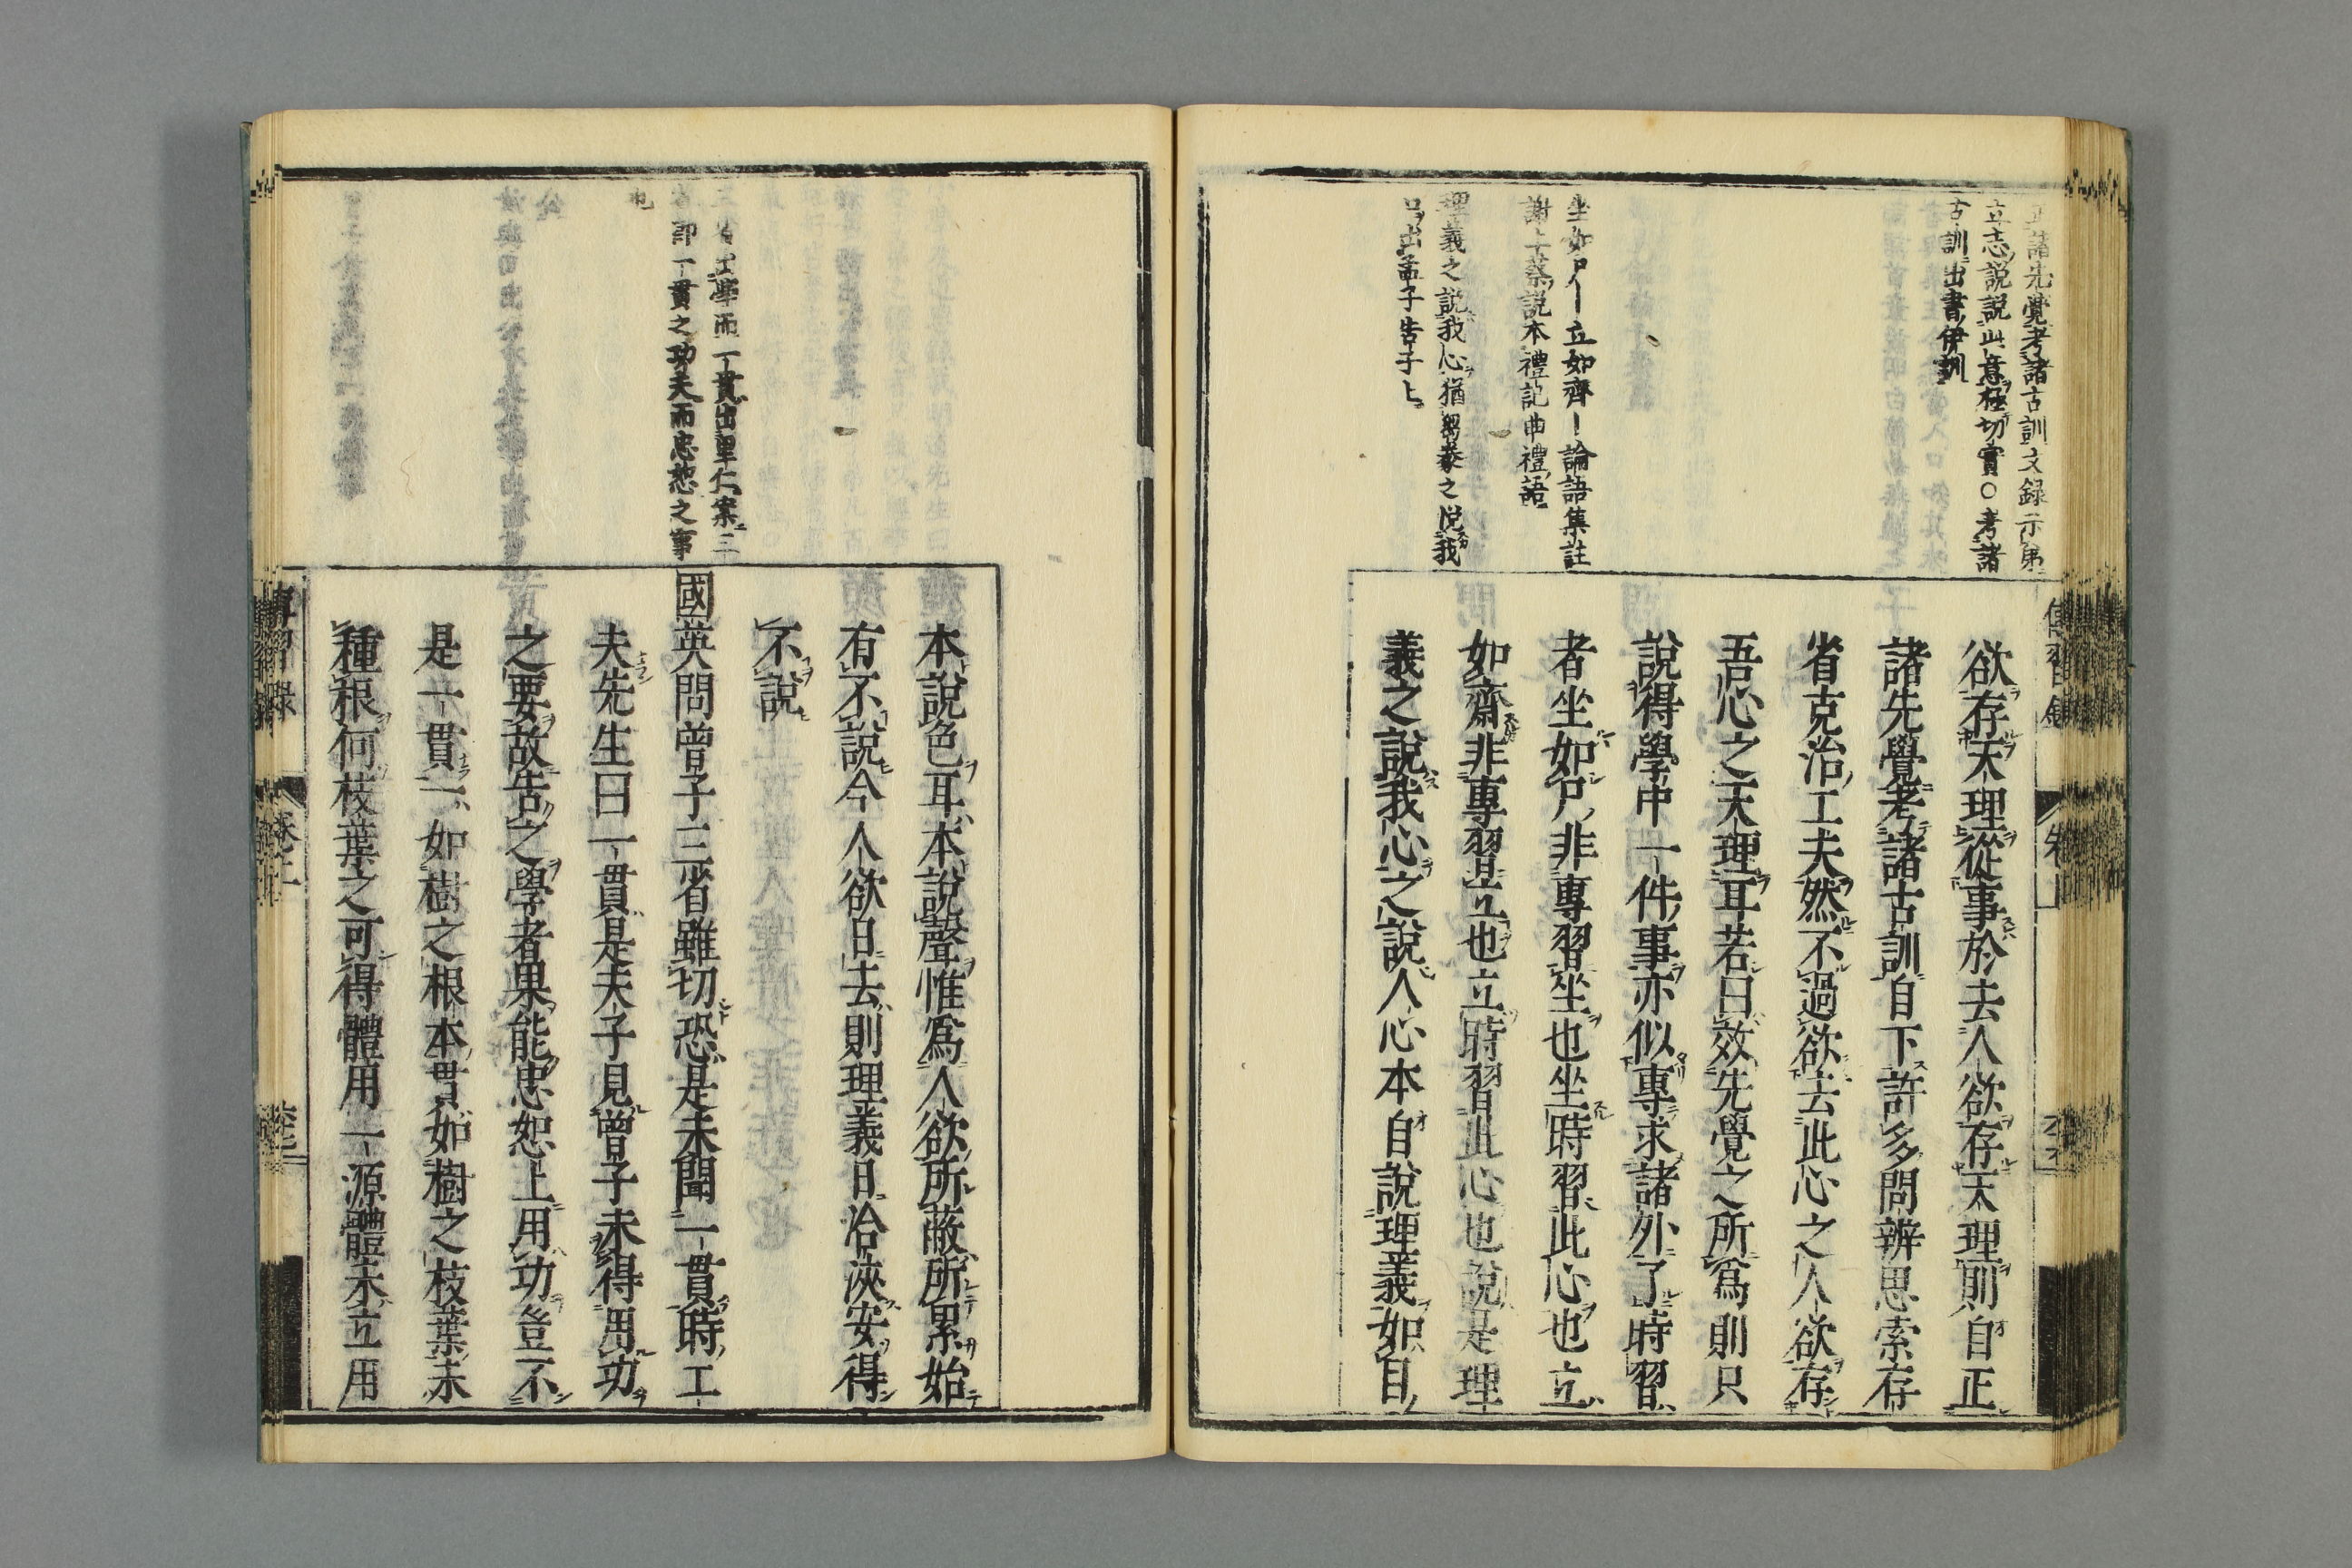 正諸先覺考諸古訓文録示弟
立志說說此意極切實○考諸
古訓出書伊訓
坐如尸―立如齊―論語集註
謝上蔡說本禮記曲禮語
理義之説我心猶芻豢之悅我
口出孟子告子上
傳習錄
卷上
欲存天理從事於去人欲存天理則自正
諸先覺考諸古訓自下許多問辨思索存
省克治工夫然不過欲去此心之人欲存
吾心之天理耳若曰效先覺之所爲則只
說得學中一件事亦似專求諸外了時習
者坐如尸非專習坐也坐時習此心也立
如齋非專習立也立時習此心也說是理
義之說我心之說人心本自說理義如目
三省出學而一貫出里仁案三
省即一貫之功夫而忠恕之事
也
本說色耳本說聲惟爲人欲所蔽所累始
有不說今人欲日去則理義日洽浹安得
不說
國英問曾子三省雖切恐是未聞一貫時工
夫先生曰一貫是夫子見曾子未得用功
之要故告之學者果能忠恕上用功豈不
是一貫一如樹之根本貫如樹之枝葉未
種根何枝葉之可得體用一源體未立用
傳習錄
卷上